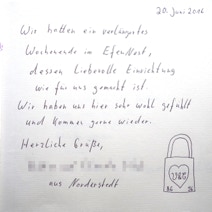 20. Juni 2016
Wir hatten ein verlängertes
Wochenende im EfeuNest,
dessen liebevolle Einrichtung
wie für uns gemacht ist.
Wir haben uns hier sehr wohl gefühlt
und kommen gerne wieder.
Herzliche Grüße,
aus Norderstedt